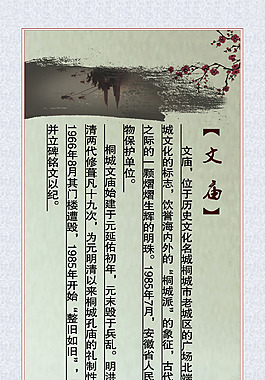 【文庙】
文庙，位于历史文化名城桐城市老城区的广场北端
城文化的标志，饮誉海内外的“桐城派”的象征，古代
之际的一颗熠熠生辉的明珠。1985年7月，安徽省人民
物保护单位。
桐城文庙始建于元延佑初年，元末毁于兵乱。明洪
清两代修葺凡十九次，为元明清以来桐城孔庙的礼制性
1966年8月其门楼遭毁，1985年开始“整旧如旧”，
并立碑铭文以纪。